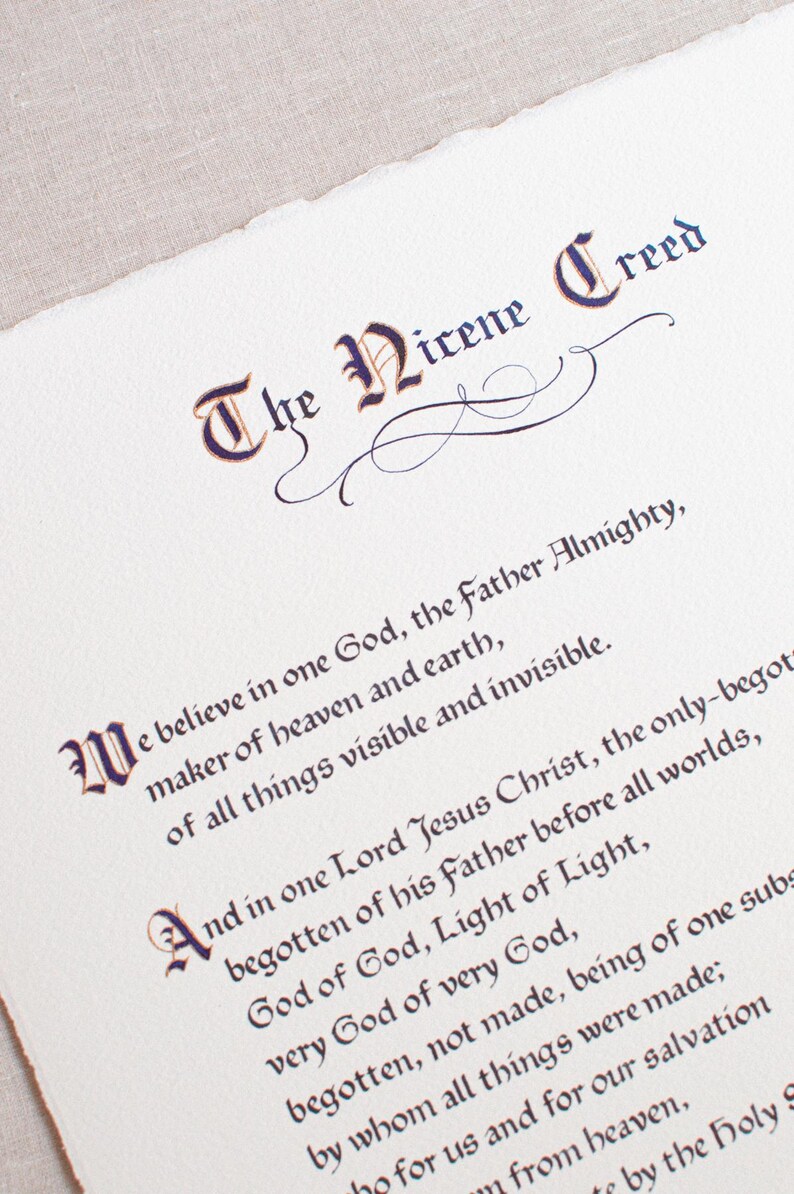 The Nicene Creed
We believe in one God, the Father Almighty,
maker of heaven and earth,
of all things visible and invisible.
And in one Lord Jesus Christ, the only-begott
begotten of his Father before all worlds,
God of God, Light of Light,
very God of very God,
begotten, not made, being of one subs
by whom all things were made;
ho for us and for our salvation
m from heaven,
te by the Holy S